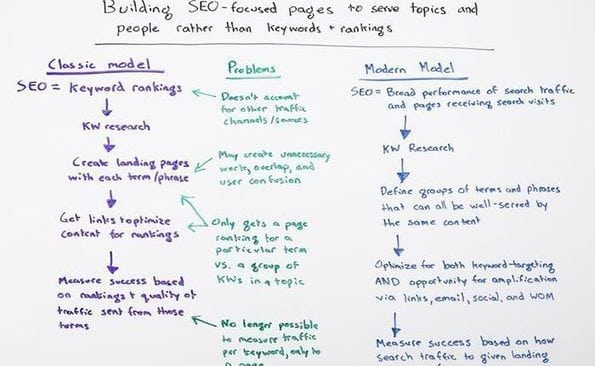 Building SEO-focused pages to serve topics and
people rather than keywords + rankings
Classic model
SEO = Keyword rankings
KW research
Create landing pages
with each term/phrase
Get links + optimize
content for rankings
Measure success based
on rankings + quality of
traffic sent from those
terms
Problems
Doesn't account
for other traffic
channels/sources
May create unnecessary
work, overlap, and
user confusion
Only gets a page
ranking for a
particular term
vs. a group of
KWs in a topic
No longer possible
to measure traffic
per keyword, only to
a page
Modern Model
SEO = Broad performance of search traffic
and pages receiving search visits
KW Research
Define groups of terms and phrases
that can all be well-served by
the same content
Optimize for both keyword-targeting
AND opportunity for amplification
via links, email, social, and WOM
Measure success based on how
search traffic to given landing